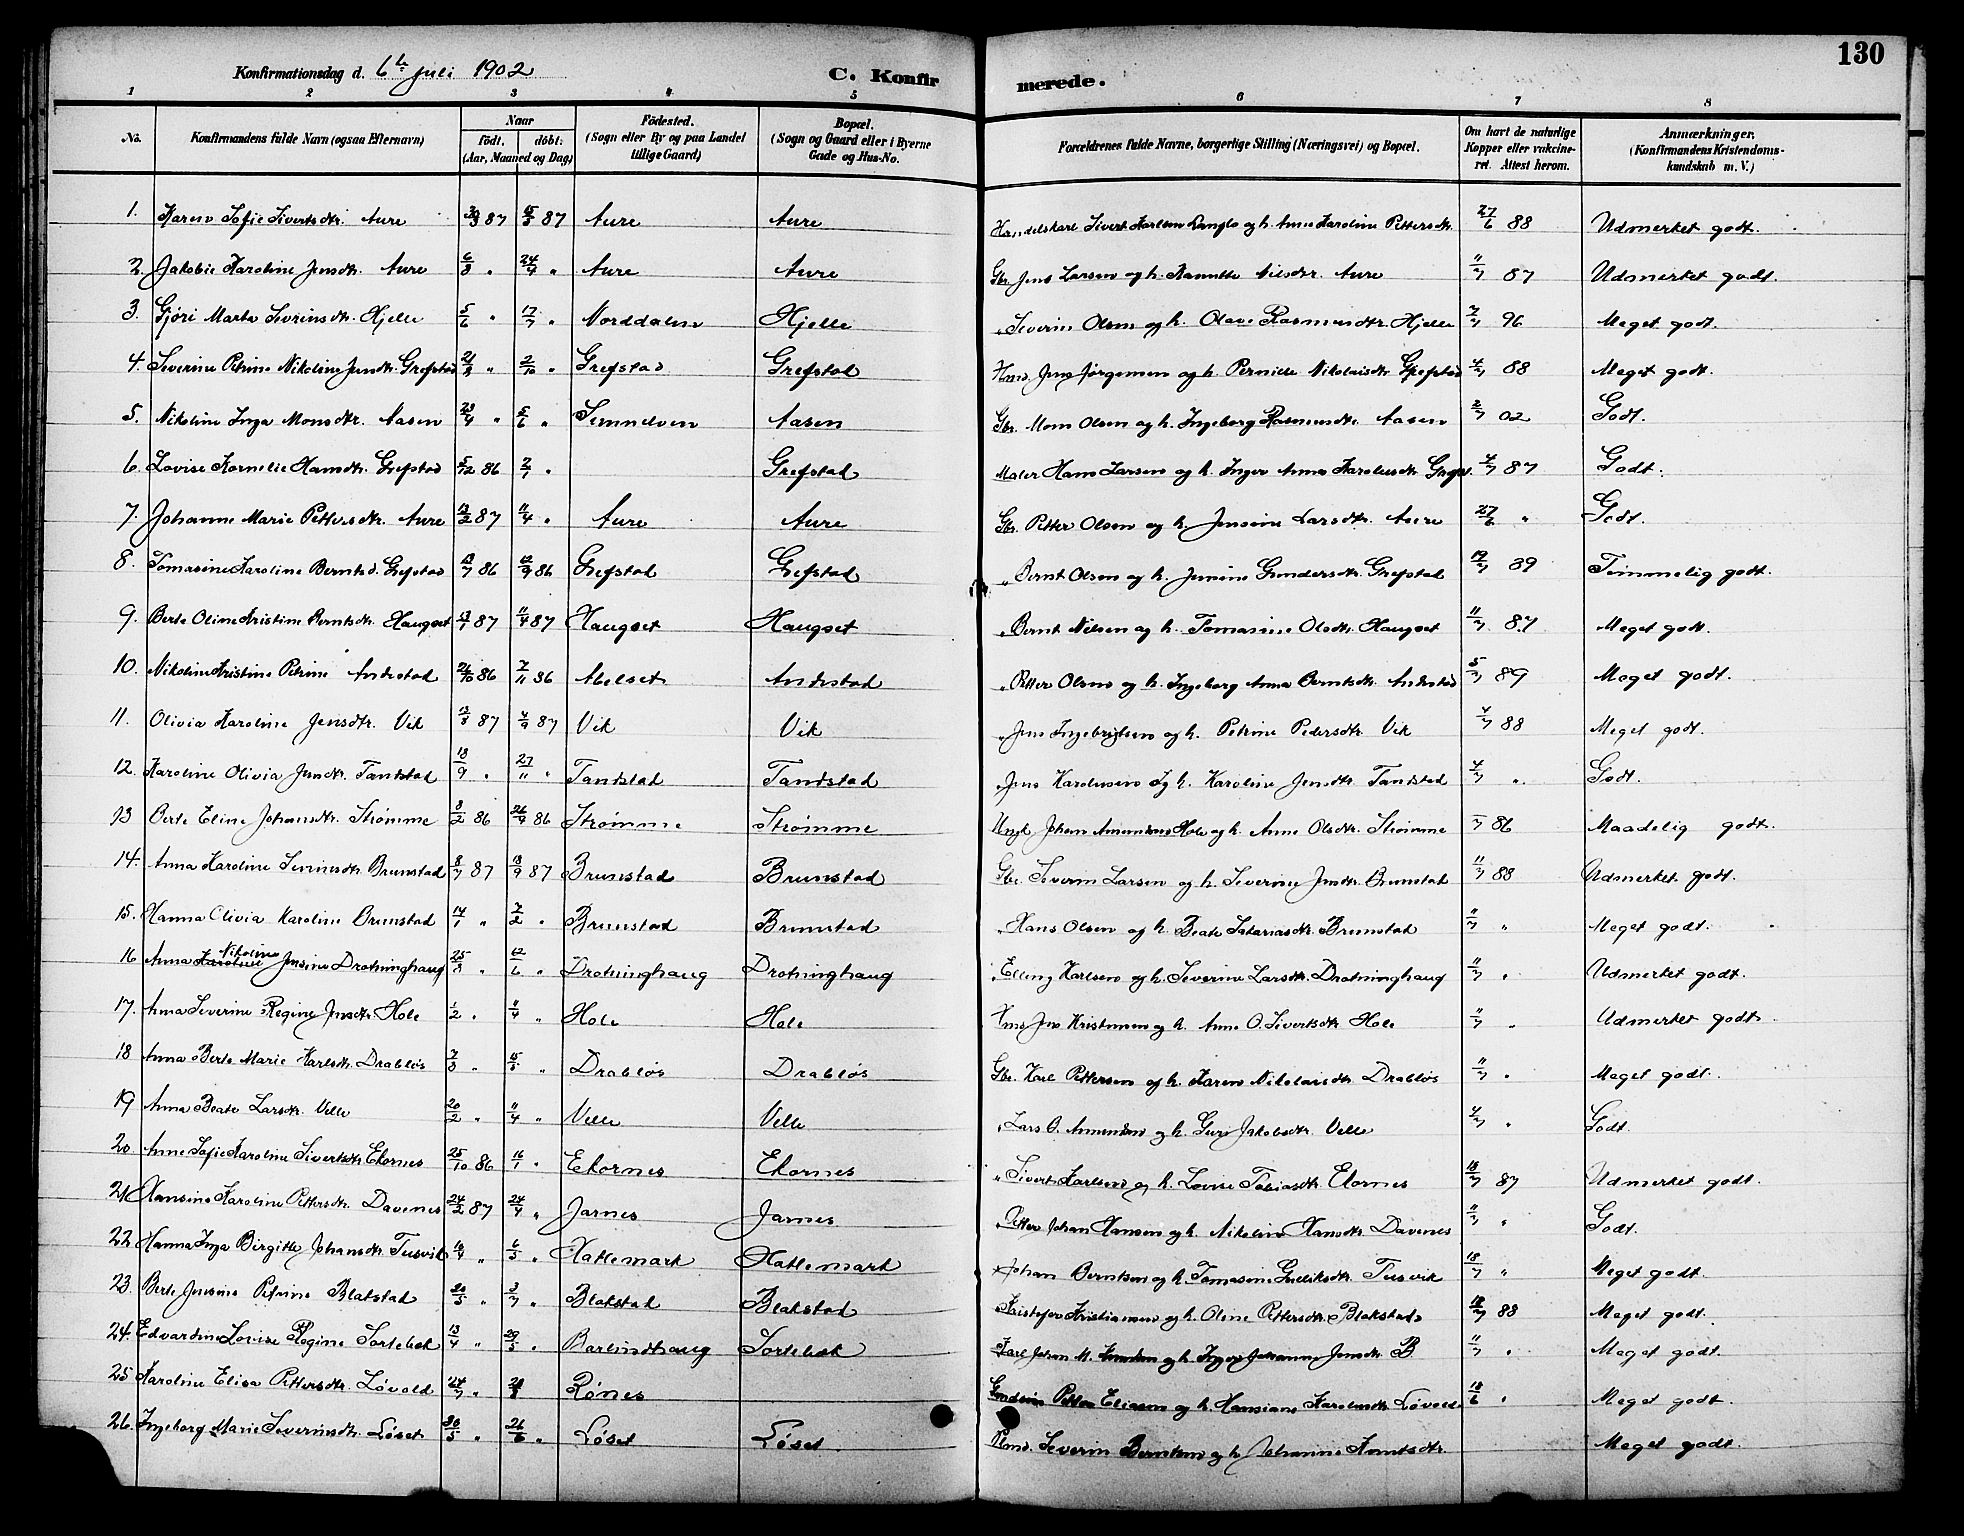 130
Konfirmationsdag d. 6te Juli 1902 C. Konfirmerede.
1 2 3 4 5 6 7 8
No. Konfirmandens fulde Navn (ogsaa Efternavn) Naar født. døbt: (Aar, Maaned og Dag) Fødested. (Sogn eller By og paa Landet tillige Gaard) Bopæl. (Sogn og Gaard eller i Byerne Gade og Hus-No. Forældrenes fulde Navne, borgerlige Stilling (Næringsvei) og Bopæl. Om havt de naturlige Kopper eller vakcineret. Attest herom. Anmærkninger, (Konfirmandens Kristendomskundskab m. V.)
1. Karen Sofie Sivertsdtr. Aure 87 15/5 87 Aure Aure Handelskarl Sivert Karlsen Langlo og h. Anne Karoline Pettersdtr. 27/6 88 Udmerket godt.
2. Jakobie Karoline Jensdtr. Aure 6/3 " 24/4 " Aure Aure Gbr. Jens Larsen og h. Nilsdtr. Aure 11/7 87 Udmerket godt.
3. Gjøri Marta Sevrinsdtr. Hjelle 5/6 " 17/7 " Norddalen Hjelle " Severin Olsen og h. Olave Rasmusdtr. Hjelle 2/7 96 Meget godt.
4. Severine Petrine Nikoline Jensdtr. Grefstad " 2/10 " Grefstad Grefstad Hmd. Jens Jørgensen og h. Pernille Nikolaisdtr. Grefstad 4/7 88 Meget godt.
5. Nikoline Inga Monsdtr. Aasen 23/4 " 5/6 " Aasen Gbr. Mons Olsen og h. Ingeborg Rasmusdtr. Aasen 2/7 02 Godt.
6. Lovise Kornelie Hansdtr. Grefstad 5/12 86 2/1 " Grefstad Maler Hans Larsen og h. Inger Anna Karolusdtr. Grefst. 4/7 87 Godt.
7. Johanne Marie Pettersdtr. Aure 13/2 87 11/4 " Aure Aure Gbr. Petter Olsen og h. Jensine Larsdtr. Aure 27/6 " Godt.
8. Tomasine Karoline Berntsd. Grefstad 13/7 86 12/9 86 Grefstad Grefstad " Bernt Olsen og h. Jensine Gundersdtr. Grefstad 12/7 89 Temmelig godt.
9. Berte Oline Kristine Berntsdtr. Haugset 13/1 87 11/4 87 Haugset Haugset " Bernt Nilsen og h. Tomasine Olsdtr. Haugset 11/7 87 Meget godt.
10. Nikoline Kristine Petrine Andestad 26/10 86 7/11 86 Abelset Andestad " Petter Olsen og h. Ingeborg Anna Berntsdtr. Andestad 5/7 89 Meget godt.
11. Olivia Karoline Jensdtr. Vik 13/8 87 4/9 87 Vik Vik " Jens Ingebrigtsen og h. Petrine Pedersdtr. Vik 4/7 88 Meget godt.
12. Karoline Olivia Jensdtr. Tandstad 18/9 " 27/11 " Tandstad Tandstad " Jens Karolusen og h. Karoline Jensdtr. Tandstad 4/7 " Godt.
13 Berte Eline Johansdtr. Strømme 8/2 86 26/4 86 Strømme Strømme Ungk. Johan Amundsen Hole og h. Anne Olsdtr. Strømme 86 Maadelig godt.
14. Anna Karoline Sevrinsdtr. Brunstad 8/7 87 18/9 87 Brunstad Brunstad Gbr. Severin Larsen og h. Severine Jensdtr. Brunstad 11/7 88 Udmerket godt.
15. Hanna Olivia Karoline Brunstad 14/1 " 7/2 " Brunstad Brunstad " Hans Olsen og h. Beate Sakariasdtr. Brunstad 11/7 " Meget godt.
16 Anna Karoline Nikoline Jensine Drotninghaug 25/3 " 12/6 " Drotninghaug Drotninghaug " Elling Karlsen og h. Severine Larsdtr. Drotninghaug 11/7 " Udmerket godt.
17. Anna Severine Regine Jensdtr. Hole 1/2 " 11/4 " Hole Hole Hmd. Jens Kristensen og h. Anne O. Sivertsdtr. Hole 11/7 " Udmerket godt.
18 Anna Berte Marie Karlsdtr. Drabløs 7/3 " 15/5 " Drabløs Drabløs Gbr. Karl Pettersen og h. Karen Nikolaisdtr. Drabløs 11/7 " Meget godt.
19 Anna Beate Larsdtr. Velle 20/2 " 11/4 " Velle Velle " Lars O. Amundsen og h. Guri Jakobsdtr. Velle 4/7 " Godt.
20 Anne Sofie Karoline Sivertsdtr. Ekornes 25/10 86 16/1 " Ekornes Ekornes " Sivert Karlsen og h. Lovise Tobiasdtr. Ekornes 18/7 87 Udmerket godt.
21 Hansine Karoline Pettersdtr. Davenes 24/2 87 24/4 " Jarnes Jarnes " Petter Johan Hansen og h. Nikoline Hansdtr. Davenes 11/7 " Godt.
22 Hanna Inga Birgitte Johansdtr. Tusvik 16/4 " 6/5 " Hatlemark Hatlemark " Johan Berntsen og h. Tomasine Gulliksdtr. Tusvik 18/7 " Meget godt.
23. Berte Jensine Petrine Blakstad 20/5 " 3/7 " Blakstad Blakstad " Kristofer Kristiansen og h. Oline Pettersdtr. Blakstad 18/7 88 Meget godt.
24. Edvardine Lovise Regine Sortebæk 13/4 " 29/5 " Barlindhaug Sortebæk " Karl Johan M. og h. Inger Johanne Jensdtr. B 11/7 " Meget godt.
25 Karoline Elisa Pettersdtr. Løvold 24/7 " Rønes Petter Eliasen og h. Hansiane Karolusdtr. Løvold 18/6 " Meget godt.
26. Ingeborg Marie Severinsdtr. Løset 30/5 " 26/6 " Løset Løset Hmd. Severin Berntsen og h. Johanne Knutsdtr. Meget godt.